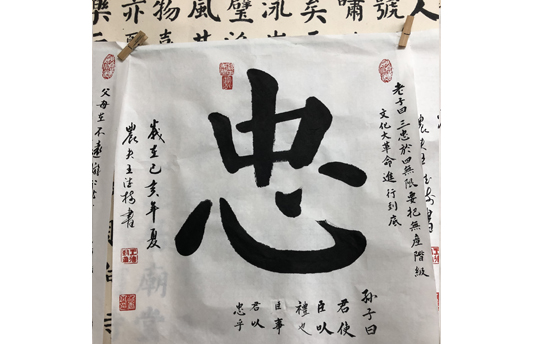 人
號
嘯
矣
泳
璧
風
物喜
亦
樂
老子曰三忠於四無限要把無產階級
文化大革命進行到底
忠
歲在己亥年夏
農夫王
書
孙子曰
君使
臣以
禮也
臣事
君以
忠乎
父母在不遠
廟堂